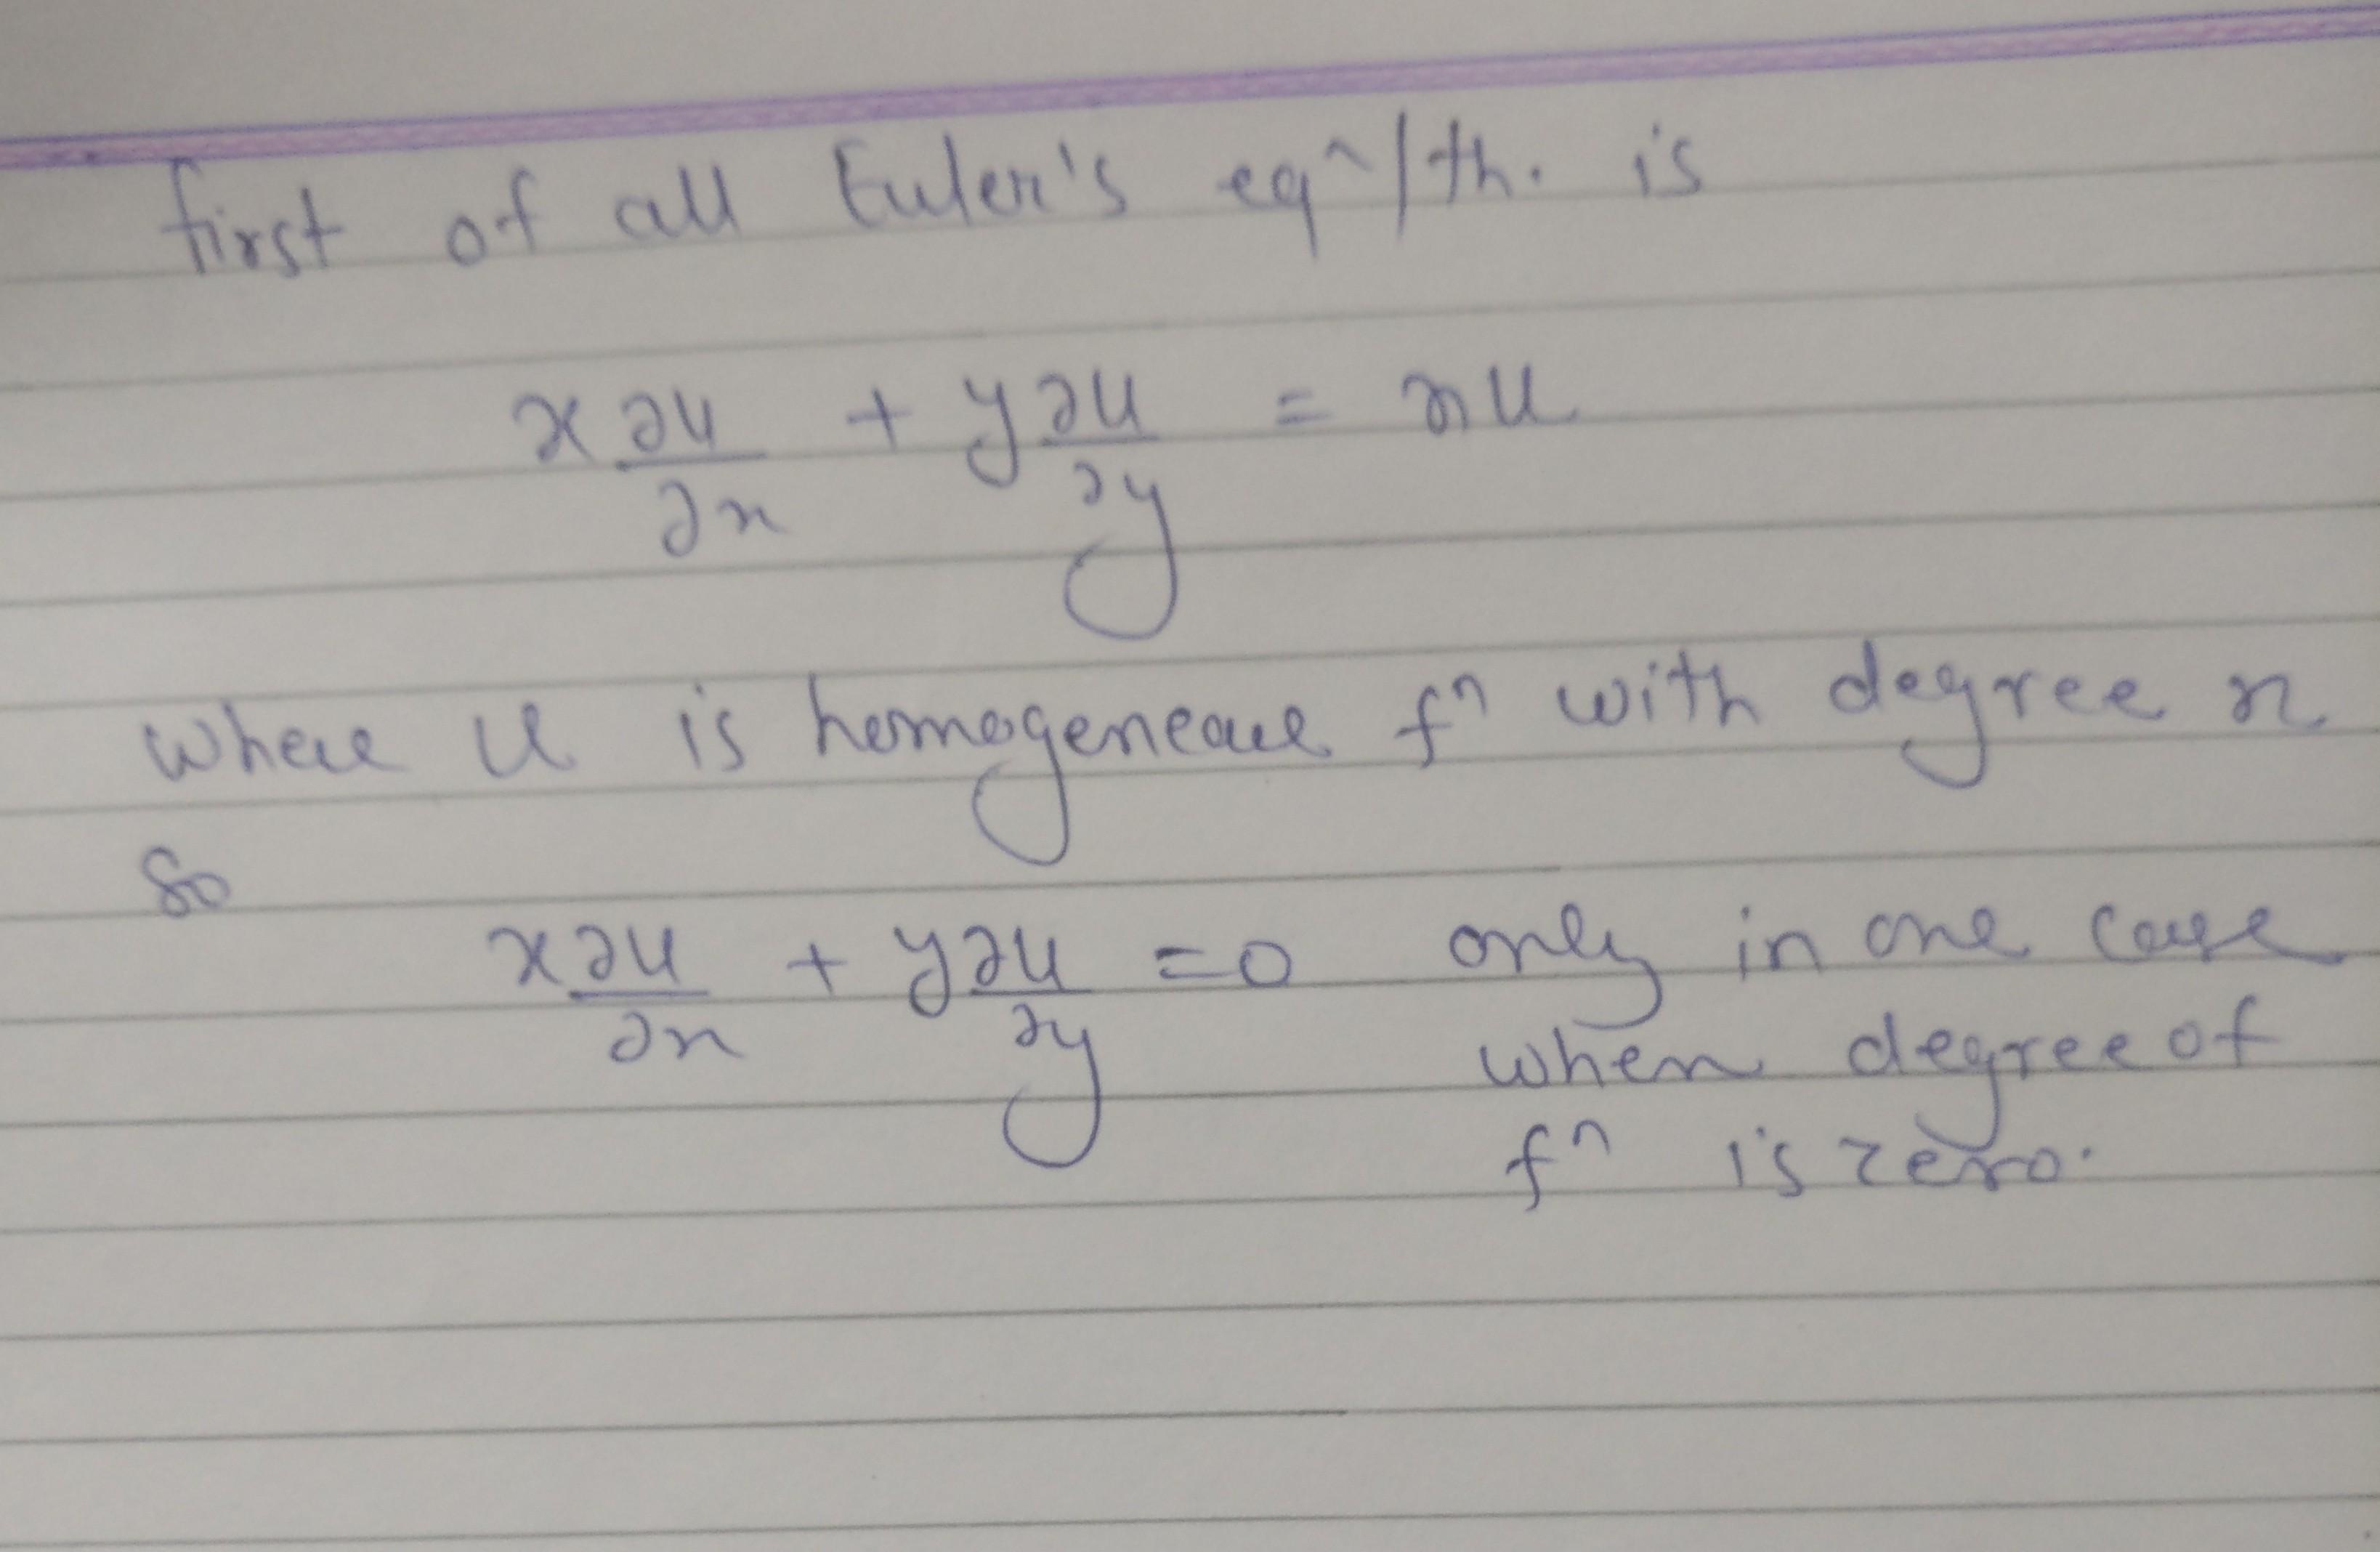 first of all Euler's eqn/th. is
x ∂u/∂x + y ∂u/∂y = nu
where u is homogeneous fn with degree n
So
x ∂u/∂x + y ∂u/∂y = 0 only in one case
when degree of
fn is zero.